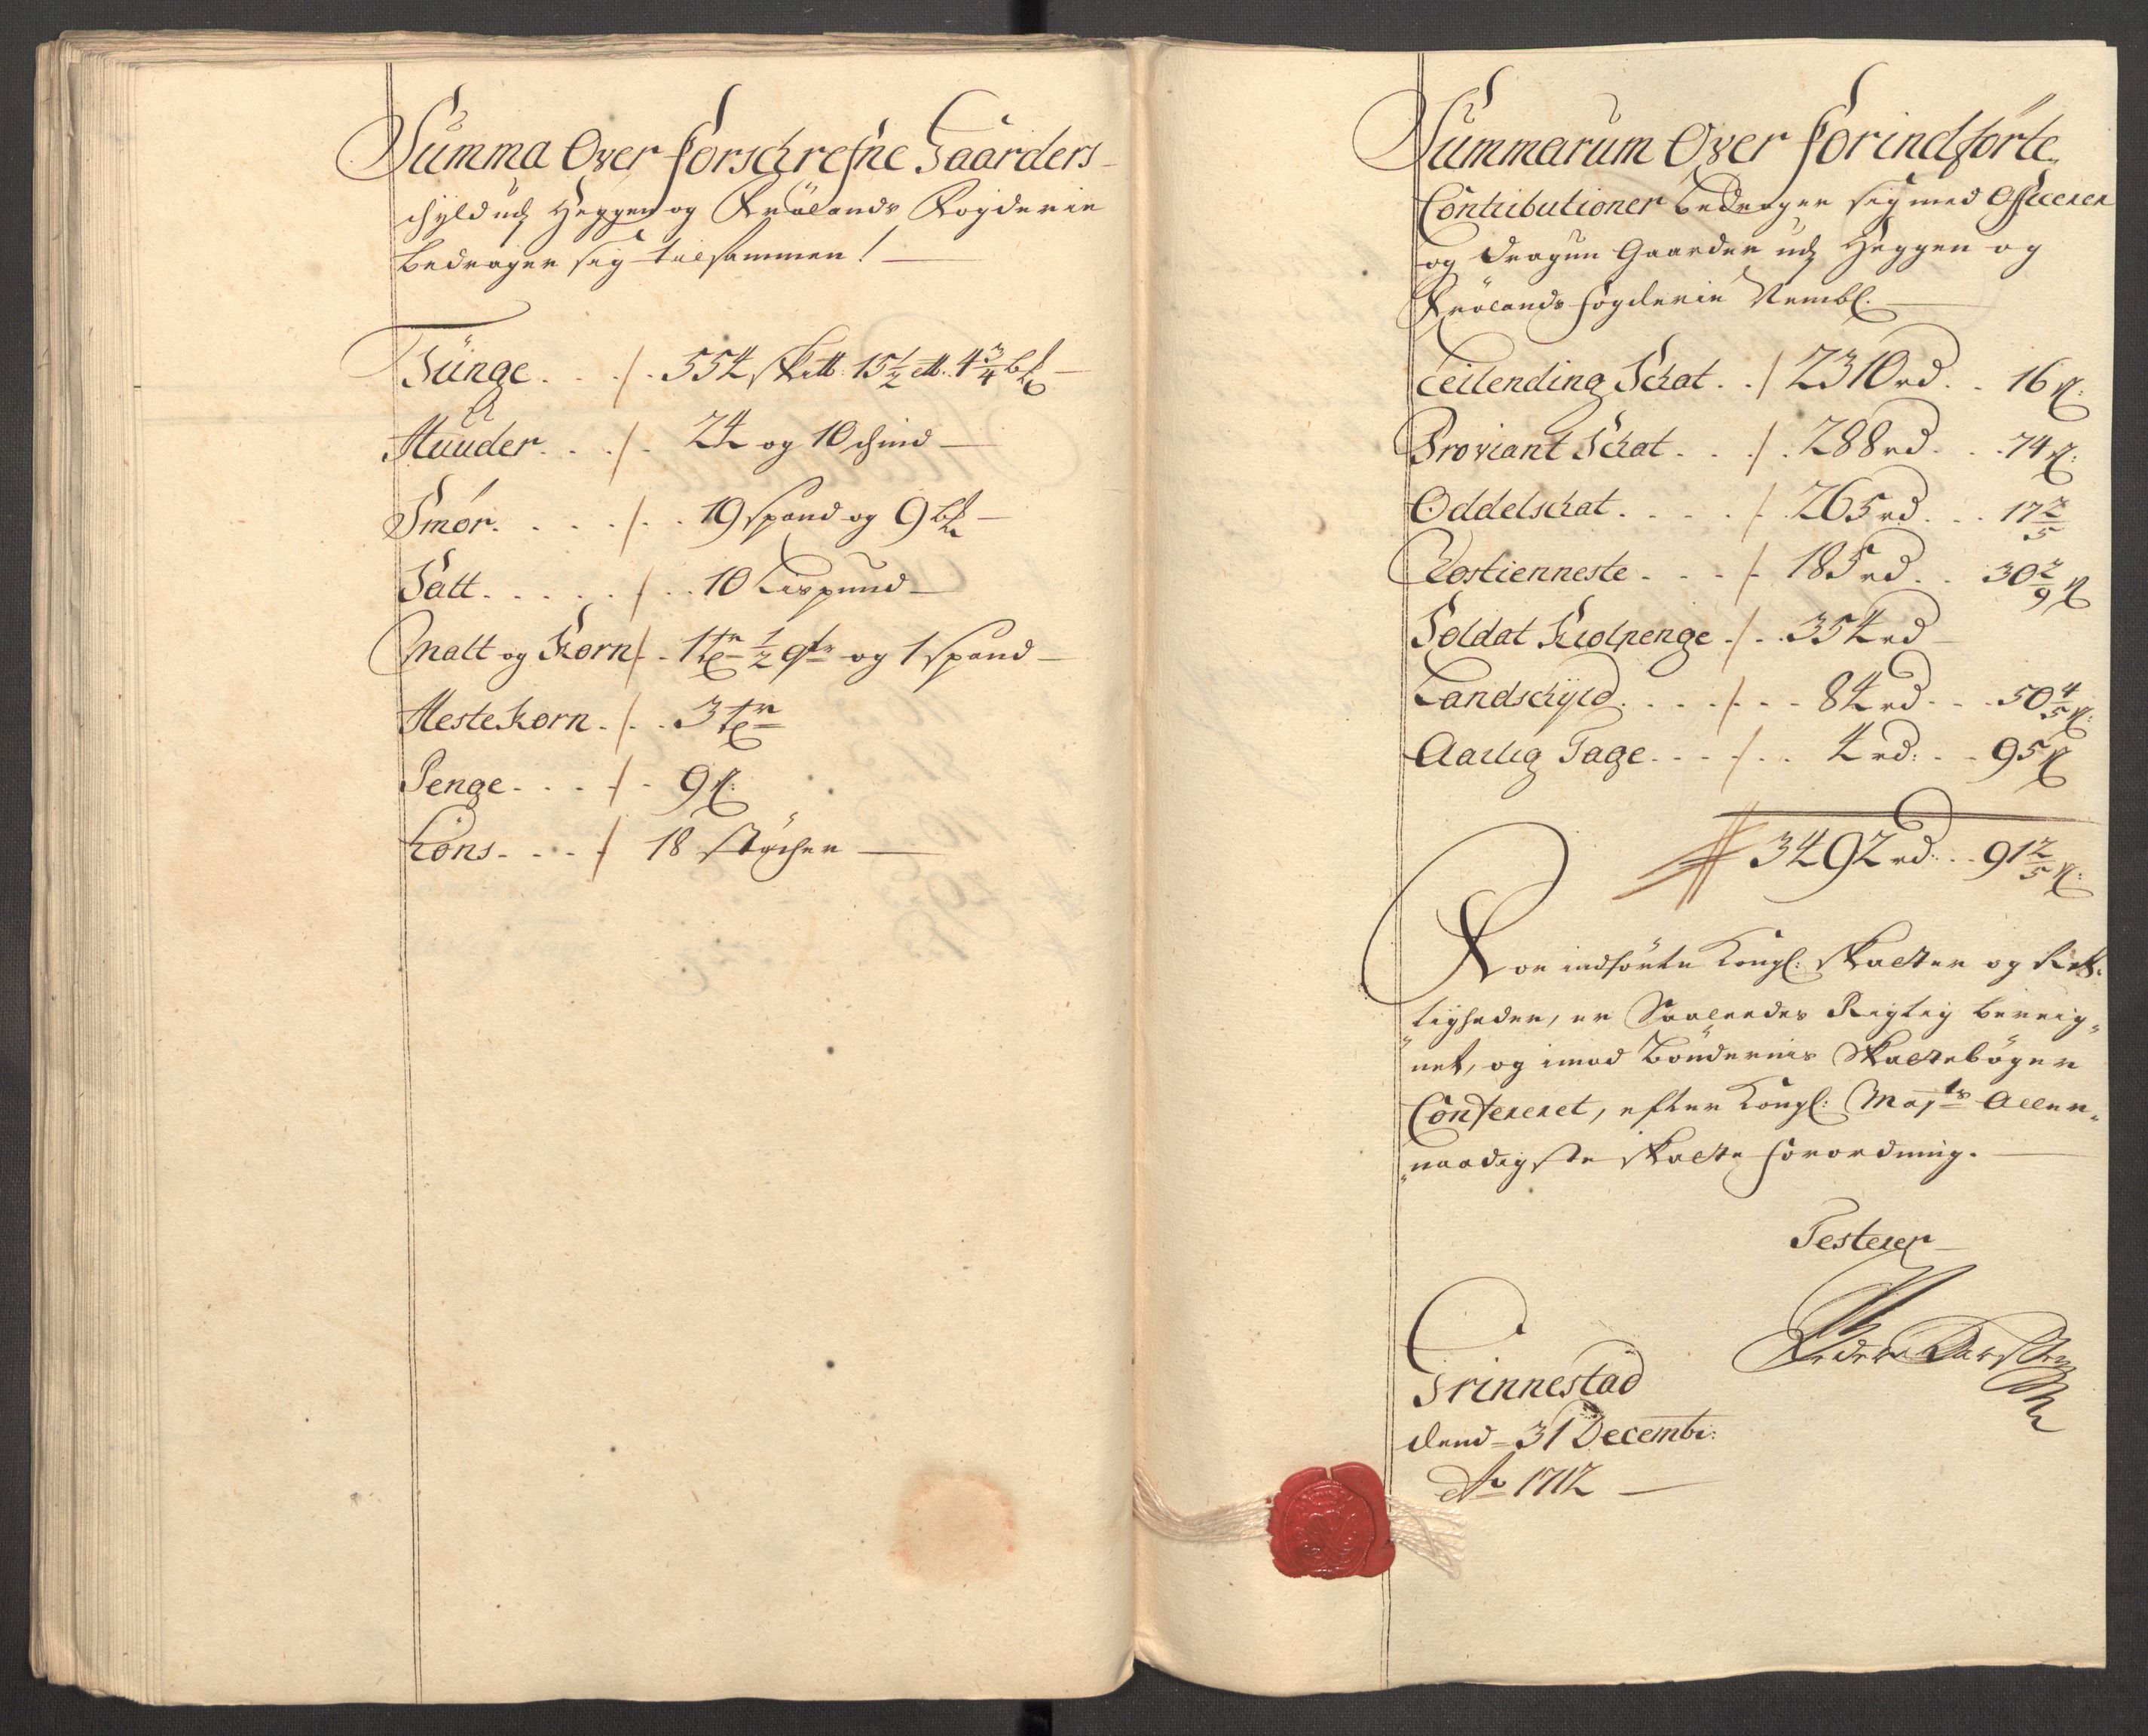 Summa Over forschrefne Gaarders
schyld udj Heggen og Frölands Fogderie
bedrager sig tilsammen!
Tünge . . . /. 554 sk℔: 15½ ℔. 4¾ bl
Huuder. . . /. 24 og 10 skind
Smør. . . . . /. . 19 spand og 9 bl
Salt. . . . . . / . . 10 Lispund
Malt og Korn /. . 1 tr ½ qtr og 1 spand
Hestekorn. /. . 3 tr
Penge. . . . / . 9 ß:
Höns. . . . / 18 støcher
Summarum Over forindførte
Contributioner bedrager sig med Officerer
og Dragun Gaarder udj Heggen og
Frölands fogderie Nembl.
Leilending Schat. . / 2310 rd . . 16 ß:
Proviant Schat. . . /. 288 rd. . . 74 ß:
Oddelschat. . . . . /. 265 rd. . . 17 2/5
Rostienneste. . . . /. 185 rd. . 30 2/9 ß
Soldat Kiolpenge. /. . 354 rd
Landschyld. . . . . /. . . 84 rd. . . 50 4/5 ß:
Aarlig Tage. . . . /. . . 4 rd: . . 95 ß
3492 rd: . . 91 2/5 ß:
For indförte Kongl: skatter og Ret:
tigheder, er Saaleedes Rigtig bereig„
„net, og imod Böndernis Skattebøger
Confereret, efter Kongl: Majts Aller„
„naadigste skatte forordning.
Testerer
Peder Larssen
Grinnestad
dend 31 Decembr:
Ao 1712